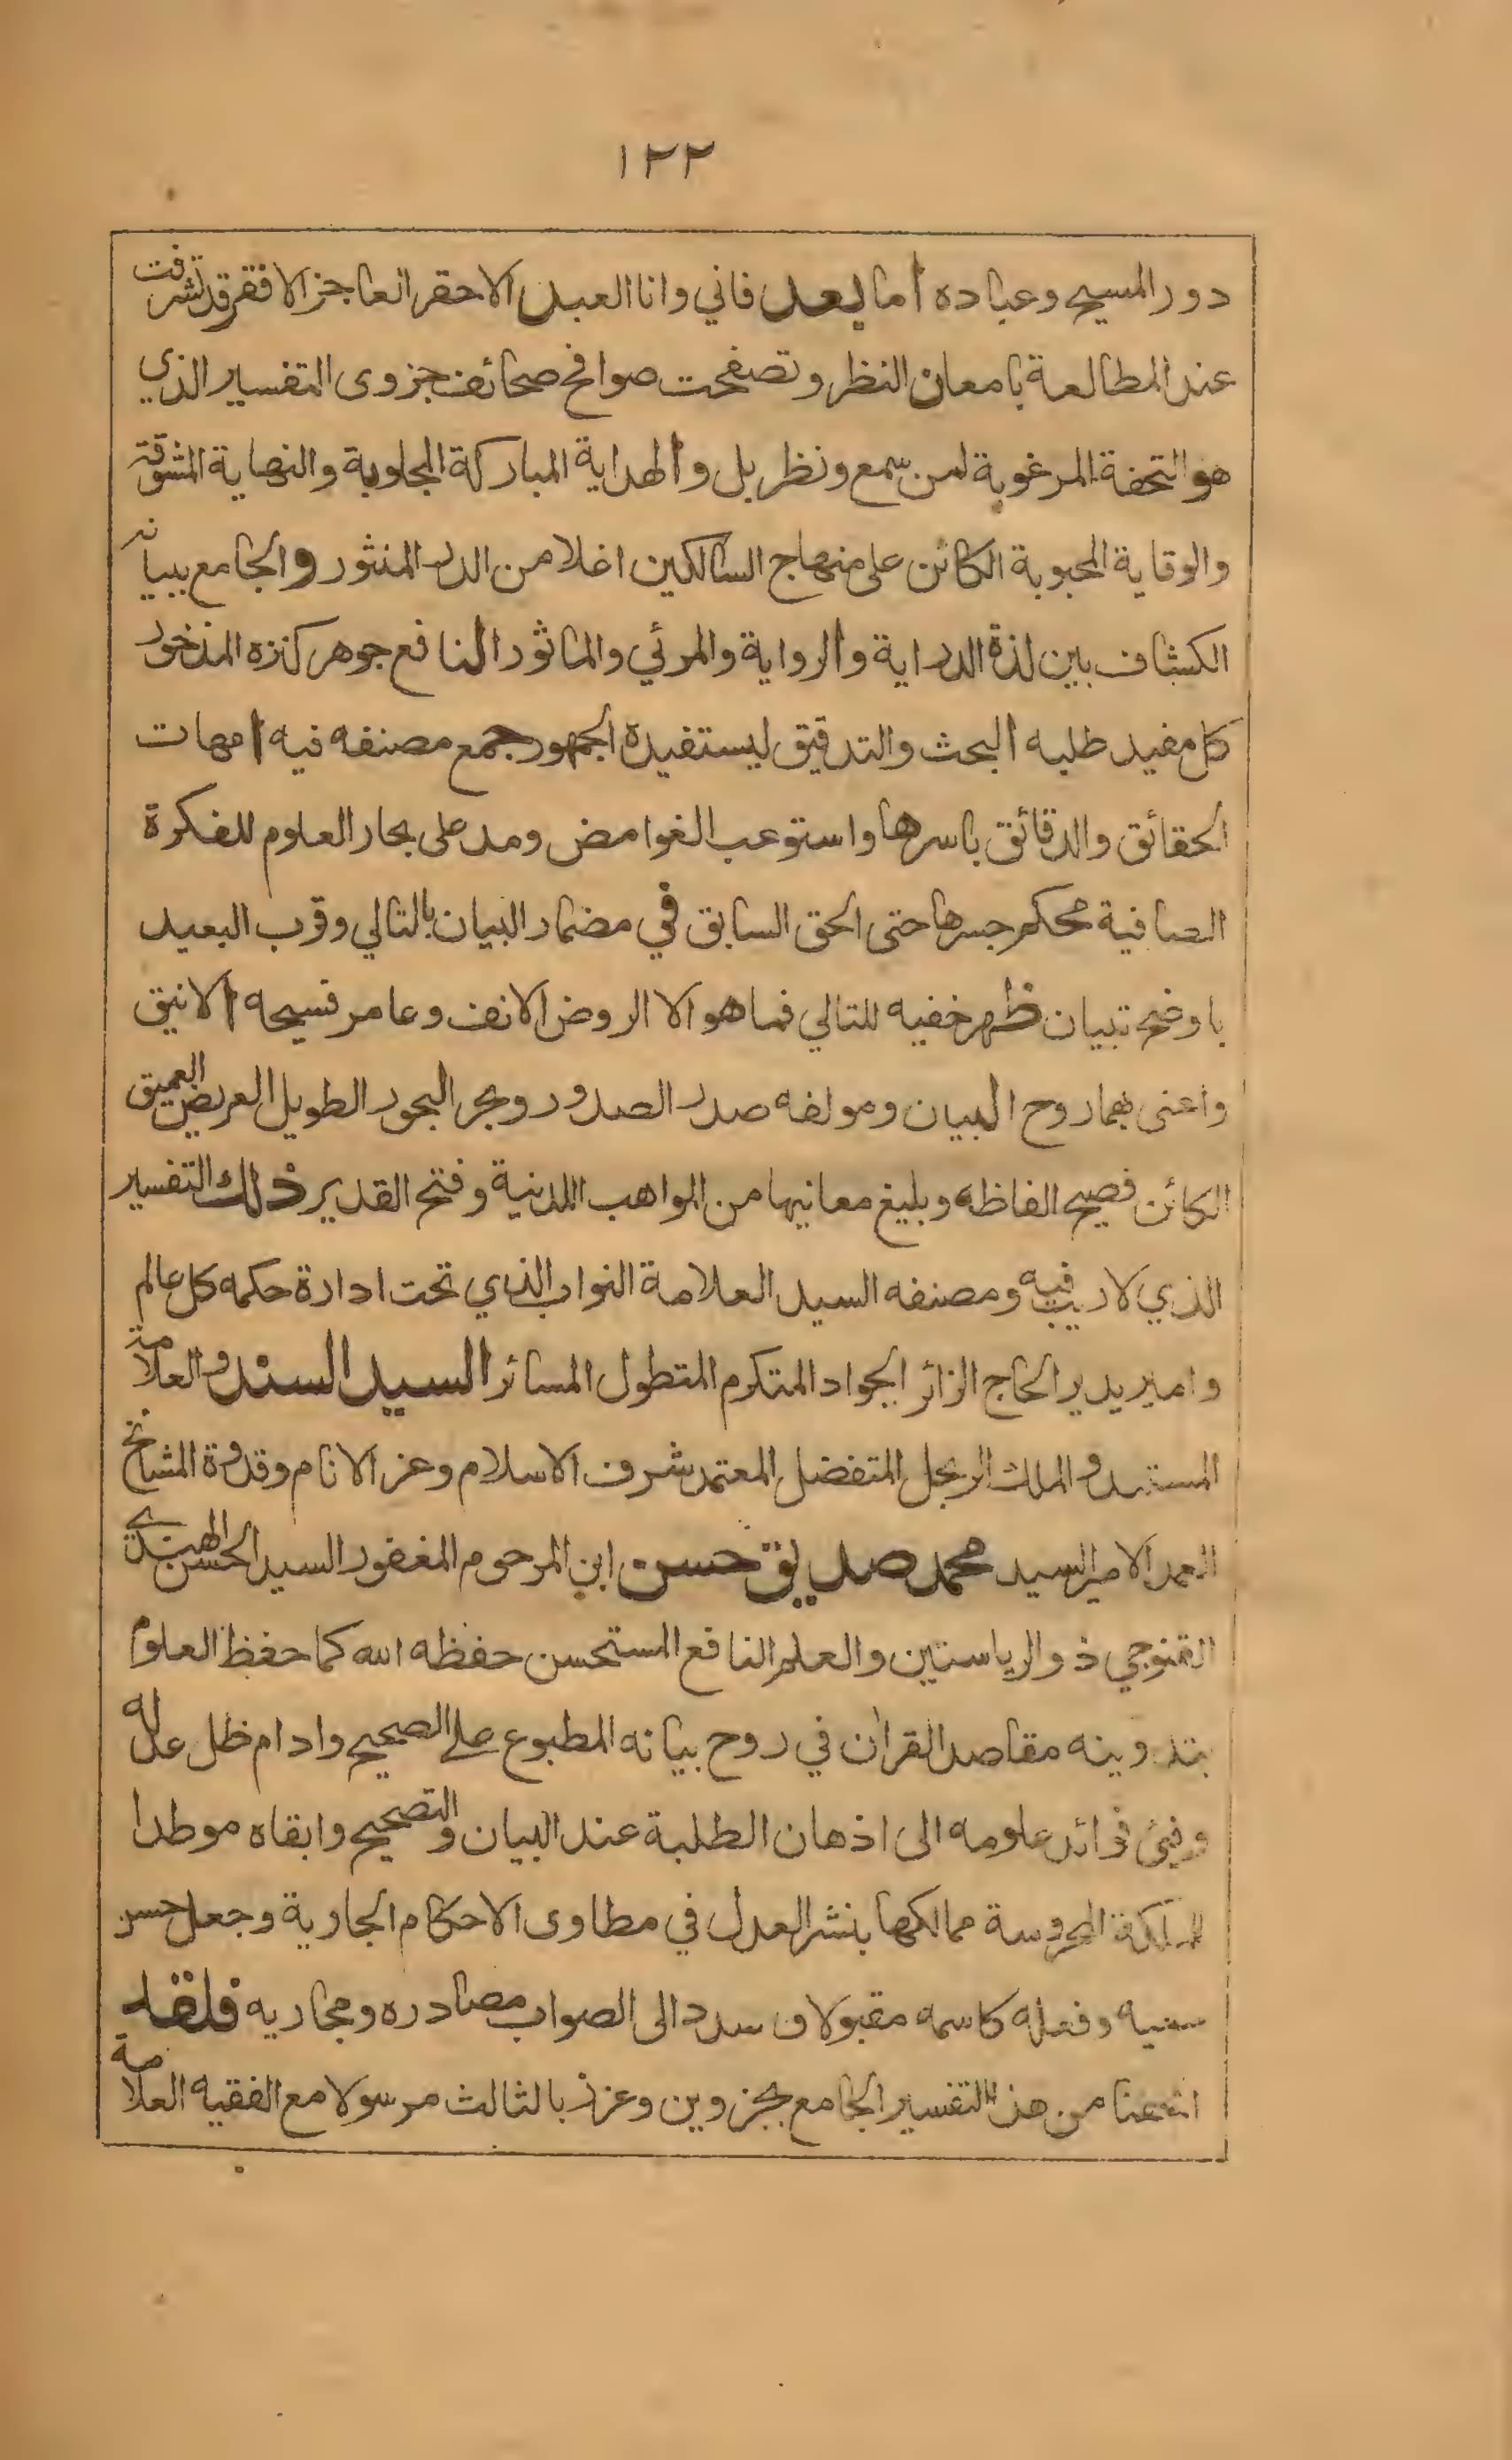 ١٢٢
دور المسيح وعباده أما بعد فاني وانا العبد الاحقر العاجز الافقر قد تشرفت
عند المطالعة بامعان النظر وتصفحت صوافح صحائف جزوى التفسير الذي
هو التحفة المرغوبة لمن سمع ونظر بل والهداية المباركة المجلوبة والنهاية المشوقة
والوقاية المحبوبة الكائن على منهاج السالكين اغلا من الدر المنثور والجامع ببيانه
الكشاف بين لذة الدراية والرواية والمرئي والماثور النافع جوهر كنزه المذخور
كل مفيد طلبه البحث والتدقيق ليستفيدة الجمهور جمع مصنفه فيه امهات
الحقائق والدقائق باسرها واستوعب الغوامض ومد على بحار العلوم للفكرة
الصافية محكم جسرها حتى الحق السابق في مضمار البيان بالتالي وقرب البعيد
باوضح تبيان ظهر خفيه للتالي فما هو الا الروض الانف وعامر فسيحه الانيق
واعنى بهما روح البيان ومولفه صدر الصدور وبحر البحور الطويل العريض العميق
الكائن فصيح الفاظه وبليغ معانيها من المواهب اللدنية وفتح القدير ذلك التفسير
الذي لاريب فيه ومصنفه السيد العلامة النواب الذي تحت ادارة حكمه كل عالم
وامير يدير الحاج الزائر الجواد المتكرم المتطول المسائر السيد السند والعلامة
المستبد والملك الرجل المتفضل المعتمد شرف الاسلام وعز الانام وقدوة المشائخ
العمد الامير السيد محمد صديق حسن ابن المرحوم المغفور السيد الحسن الهندي
القنوجي ذو الرياستين والعلم النافع المستحسن حفظه الله كما حفظ العلوم
بتدوينه مقاصد القران في روح بيانه المطبوع على الصحيح وادام ظل عدله
وفيئ فوائد علومه الى اذهان الطلبة عند البيان والتصحيح وابقاه موطدا
للملكة المحروسة ممالكها بنشر العدل في مطاوى الاحكام الجارية وجعل حسن
سعيه وفعله كاسمه مقبولا وسدد الى الصواب مصادره ومجاريه فلقد
اتحفنا من هذا التفسير الجامع بجزوين وعزز بالثالث مرسولا مع الفقيه العلامة